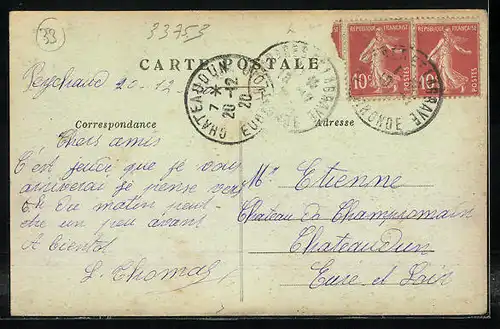 33
33753
CARTE POSTALE
RÉPUBLIQUE FRANÇAISE
10c
POSTES
10c
POSTES
CHATEAUDUN
7 *
20-12
20
EURE
GIRONDE
20-12
Correspondance
Adresse
Chers amis
C'est jeudi que je vous
arriverai je pense vers
du matin peut
être un peu avant
A bientôt
L. Thomas
Mr Etienne
Chateau de Champromain
Chateaudun
Eure et Loir